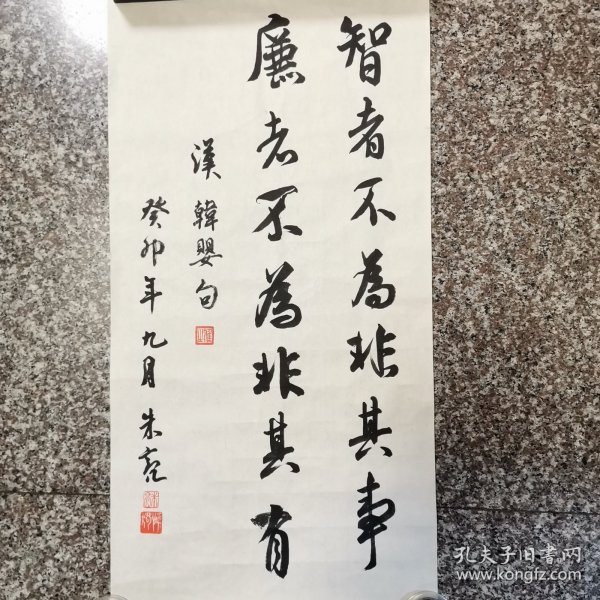 智者不為非其事
廉者不為非其有
漢 韓嬰句
癸卯年九月 朱亮
孔夫子旧書网
www.kongfz.com